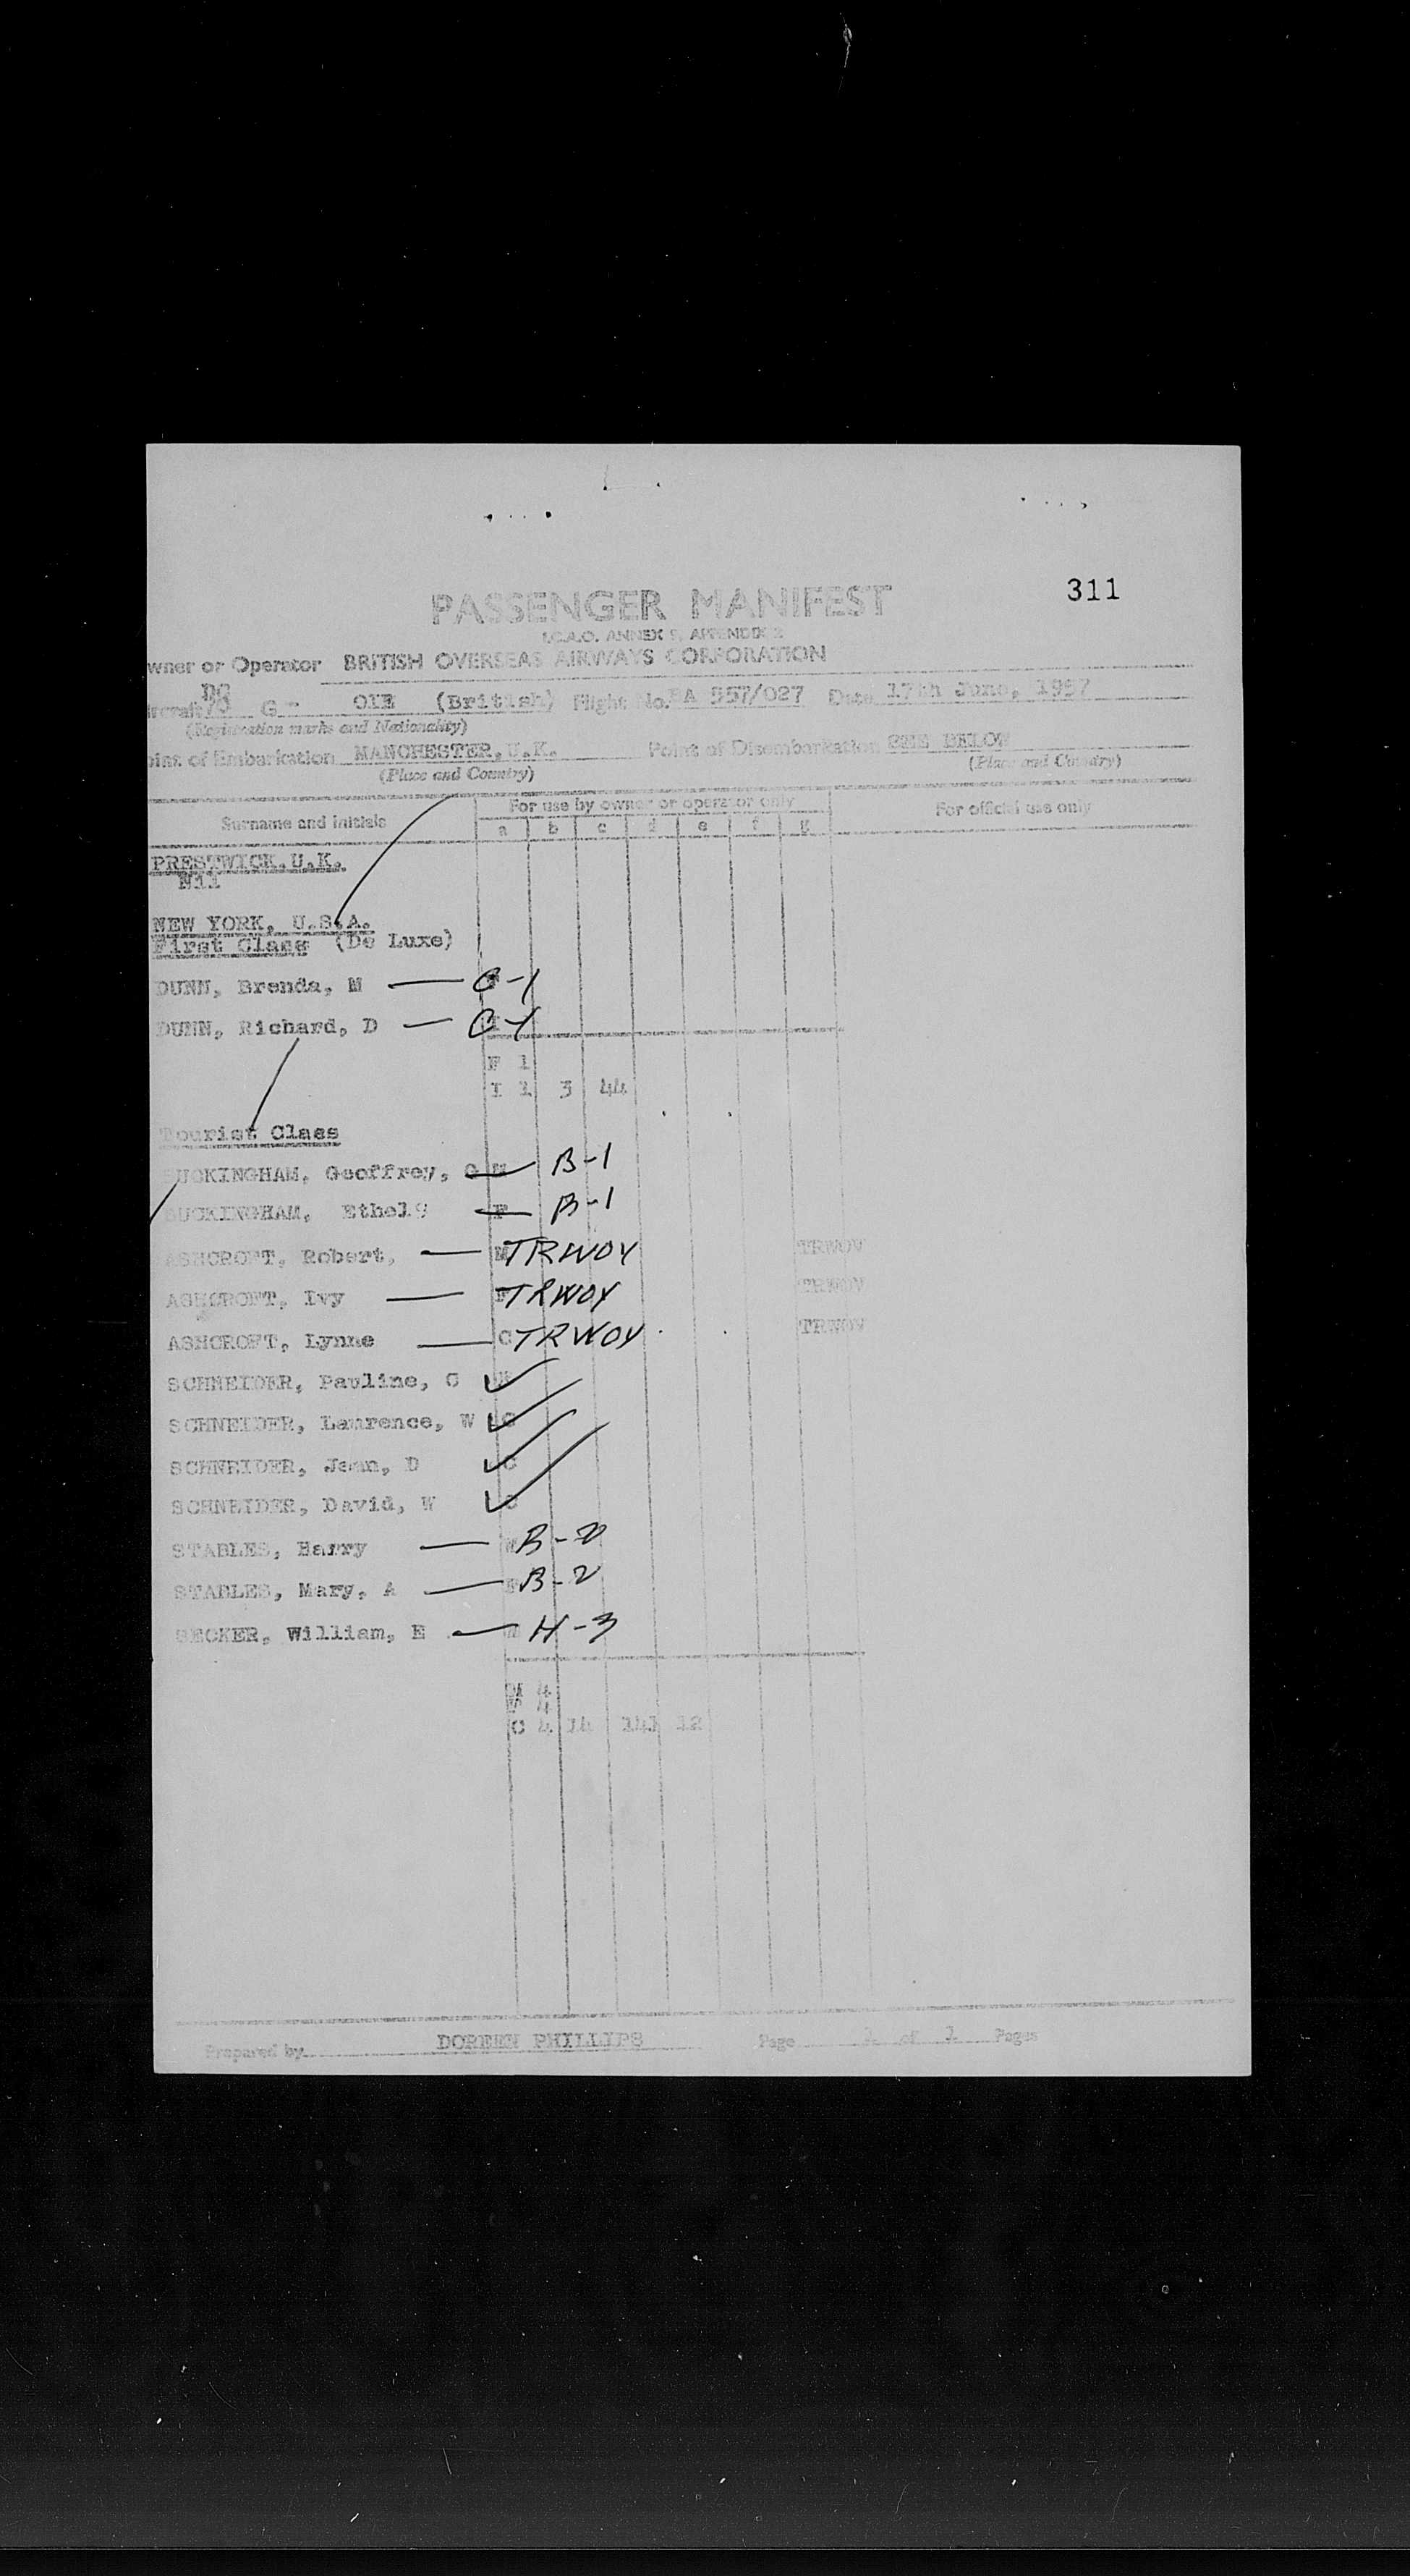 311
PASSENGER MANIFEST
I.C.A.O. ANNEX 9, APPENDIX 2
wner or Operator BRITISH OVERSEAS AIRWAYS CORPORATION
DC
ircraft G - OIE (British) Flight No. BA 557/027 Date 17th June, 1957
(Registration marks and Nationality)
oint of Embarkation MANCHESTER, U.K. Point of Disembarkation SEE BELOW
(Place and Country) (Place and Country)
For use by owner or operator only For official use only
Surname and initials a b c d e f g
PRESTWICK, U.K.
Nil
NEW YORK, U.S.A.
First Class (De Luxe)
DUNN, Brenda, M — C-1
DUNN, Richard, D — C-1
F 1
I 1 3 44
Tourist Class
BUCKINGHAM, Geoffrey, G M — B-1
BUCKINGHAM, Ethel F — B-1
ASHCROFT, Robert, — M TRWOV TRWOV
ASHCROFT, Ivy — F TRWOV TRWOV
ASHCROFT, Lynne — C TRWOV TRWOV
SCHNEIDER, Pauline, G ✓
SCHNEIDER, Laurence, W ✓ C
SCHNEIDER, Jean, D ✓ C
SCHNEIDER, David, W ✓ C
STABLES, Harry — B-2
STABLES, Mary, A — F B-2
SECKER, William, E — M H-3
M 4
4
C 4 14 141 12
Prepared by DOREEN PHILLIPS Page 1 of 1 Pages